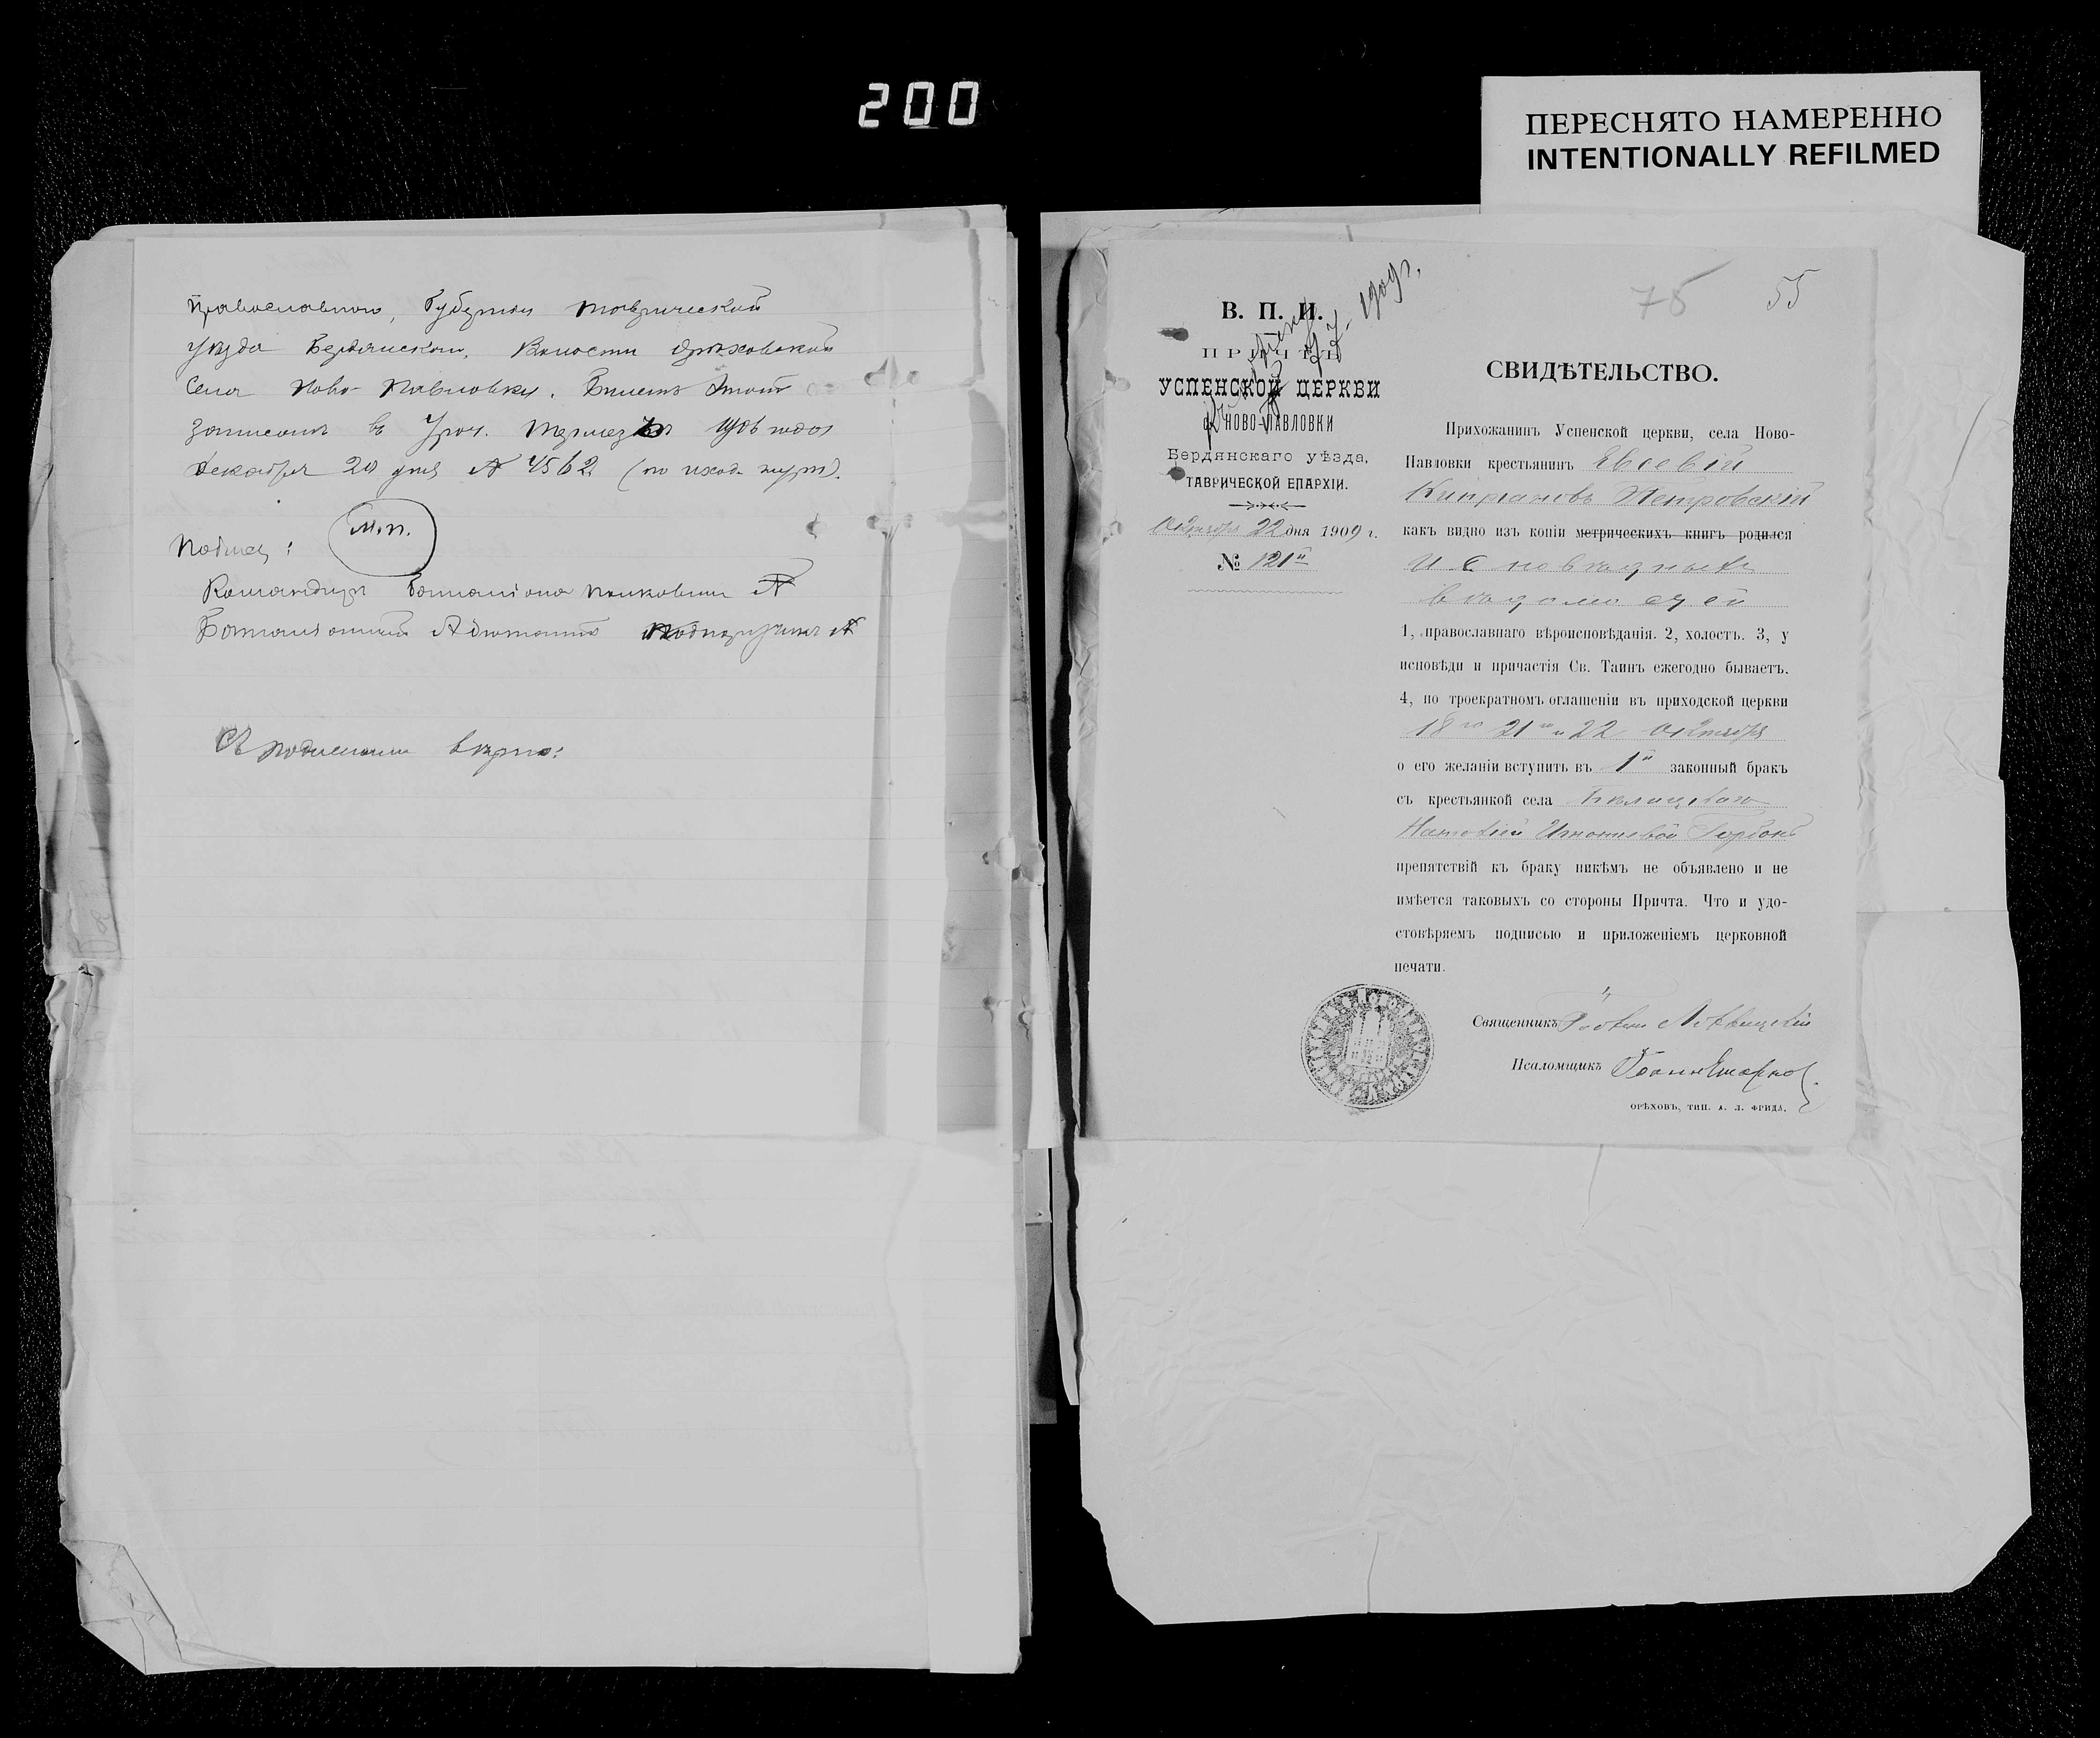 200
ПЕРЕСНЯТО НАМЕРЕННО
INTENTIONALLY REFILMED
Православнаго, Губернии Таврической
уѣзда Бердянскаго, Волости Орѣховской
Села Ново-Павловки. Билетъ этотъ
записанъ въ Уроч. Термезъ 1906 года
декабря 20 дня № 4562
М.П.
Подпис:
Командиръ Баталiона Полковникъ
Баталiонный Адъютантъ Подпоручикъ
Съ подлиннымъ вѣрно:
75 55
1909 г.
В. П. И.
ПРИЧТЪ
УСПЕНСКОЙ ЦЕРКВИ
с. НОВО-ПАВЛОВКИ
Бердянскаго уѣзда,
ТАВРИЧЕСКОЙ ЕПАРХІИ.
Октября 22 дня 1909 г.
№ 121
СВИДѢТЕЛЬСТВО.
Прихожанинъ Успенской церкви, села Ново-
Павловки крестьянинъ Евсевій
Кипріановъ Петровскій
какъ видно изъ копіи метрическихъ книгъ родился
и исповѣдныхъ
вѣдомостей
1, православнаго вѣроисповѣданія. 2, холостъ. 3, у
исповѣди и причастія Св. Таинъ ежегодно бываетъ.
4, по троекратномъ оглашеніи въ приходской церкви
18го 21го и 22 Октября
о его желаніи вступить въ 1й законный бракъ
съ крестьянкой села
препятствій къ браку никѣмъ не объявлено и не
имѣется таковыхъ со стороны Причта. Что и удо-
стовѣряемъ подписью и приложеніемъ церковной
печати.
Священникъ
Псаломщикъ
ОРѢХОВЪ, ТИП. А. Л. ФРИДА.